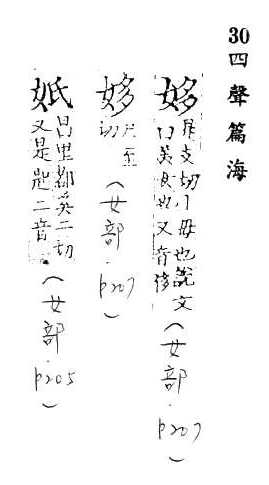 30四聲篇海
姼 是支切母也說文
曰美女也又音侈
（女部．p207）
姼 尺至
切
（女部．p207）
妷 昌里都奚二切
又是匙二音
（女部．p205）